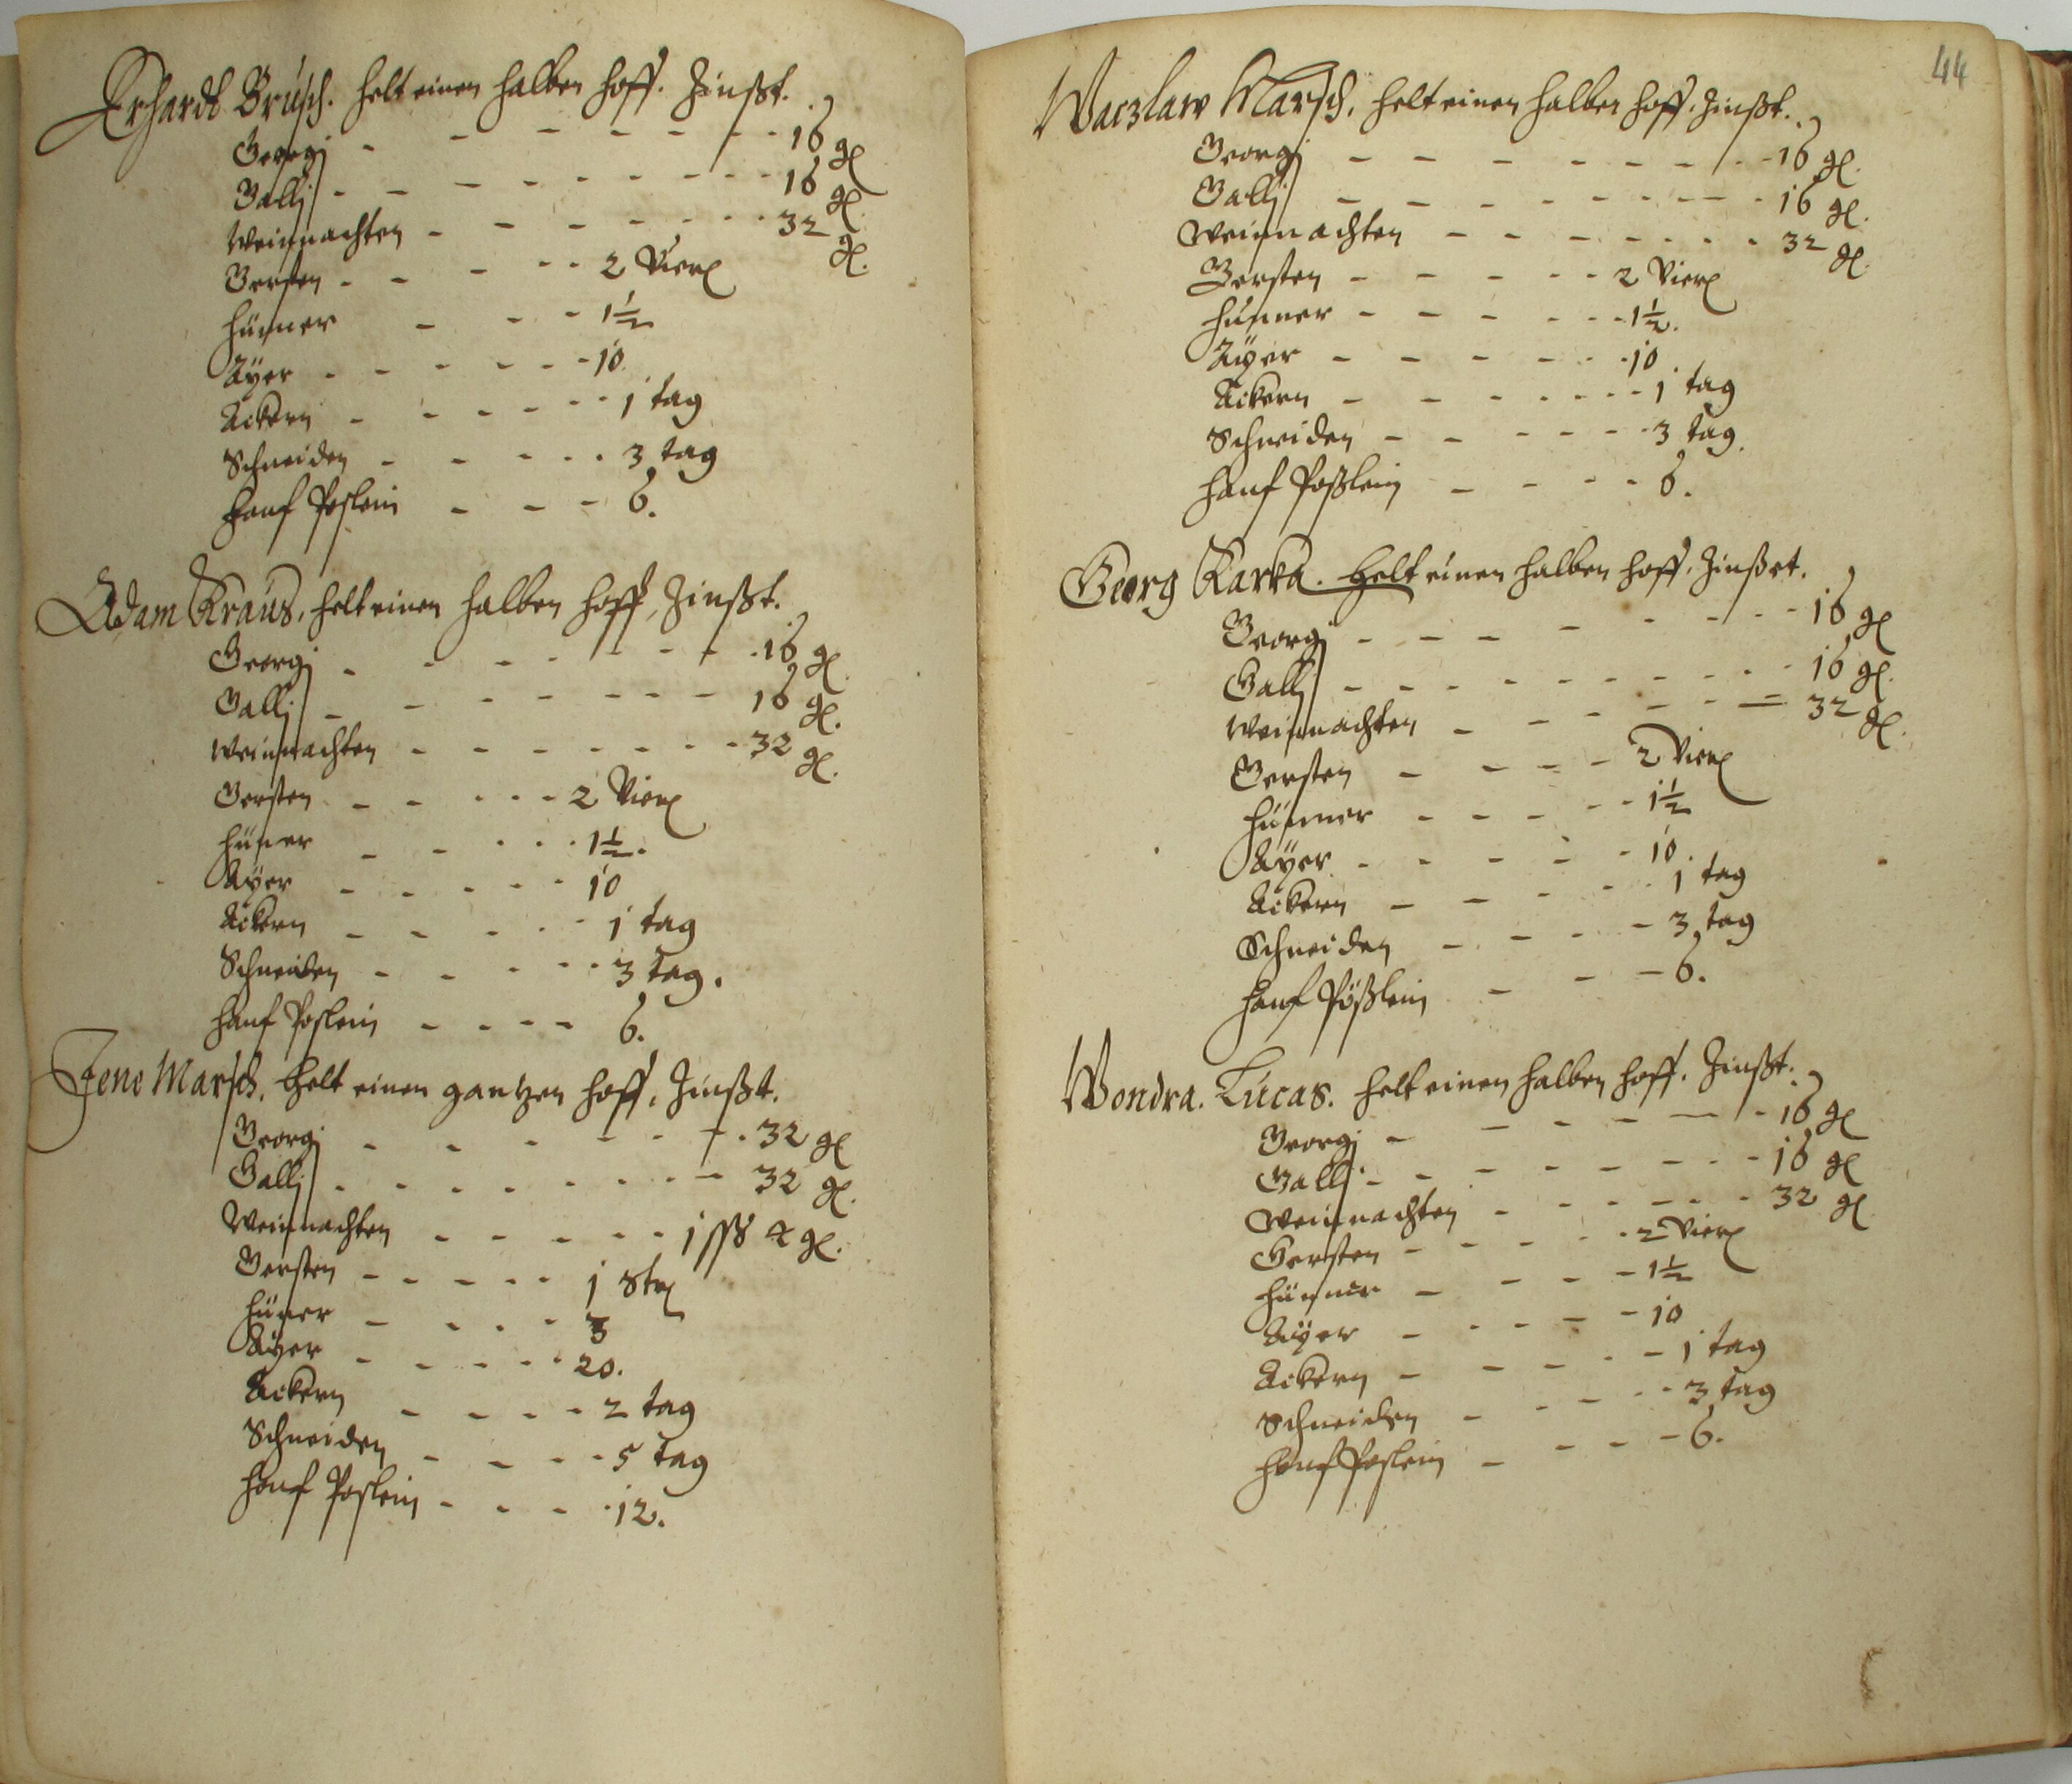 Erhardt Brúsch. helt einen halben hoff. Zinßt.
Georgj - - - - - - - 16 gl
Gallj - - - - - - - - 16 gl.
Weinnachten - - - - - - - 32 gl.
Gersten - - - - - 2 Vierl
hüner - - - 1½
Äyer - - - - - - 10
Ackern - - - - - - 1 tag
Schneiden - - - - - 3 tag
hanf Poslein - - - 6.
Adam Kraús, helt einen halben hoff, Zinßt.
Georgj - - - - - - - 16 gl.
Gallj - - - - - - - 16 gl.
Weinnachten - - - - - - - 32 gl.
Gersten - - - - - 2 Vierl
hüner - - - - - 1½.
Äyer - - - - - 10
Ackern - - - - - 1 tag
Schneiden - - - - - 3 tag.
hanf Poslein - - - - 6.
Jene Marsch. helt einen gantzen hoff, Zinßt.
Georgj - - - - - - - 32 gl
Gallj - - - - - - - - 32 gl.
Weinnachten - - - - - 1 ßß 4 gl.
Gersten - - - - - 1 Strl
hüner - - - - 3
Äyer - - - - - 20.
Ackern - - - - 2 tag
Schneiden - - - - 5 tag
hanf Poslein - - - - 12.
44
Waczlaw Marsch. helt einen halben hoff. Zinßt.
Georgj - - - - - - - - 16 gl.
Gallj - - - - - - - - 16 gl.
Weinnachten - - - - - - - 32 gl.
Gersten - - - - - 2 Vierl
húnner - - - - - - 1½.
Äyer - - - - - - 10
Ackern - - - - - - - 1 tag
Schneiden - - - - - - 3 tag.
hanf Poßlein - - - - 6.
Georg Karka. helt einen halben hoff. Zinßet.
Georgj - - - - - - - - 16 gl
Gallj - - - - - - - - - 16 gl.
Weinnachten - - - - - - 32 gl.
Gersten - - - - - 2 Vierl
húnner - - - - - 1½
Äyer - - - - - 10
Ackern - - - - - - 1 tag
Schneiden - - - - 3 tag
hanf Pößlein - - - 6.
Wondra. Lúcas. helt einen halben hoff. Zinßt.
Georgj - - - - - - - 16 gl
Gallj - - - - - - - - 16 gl
Weinnachten - - - - - - 32 gl
Gersten - - - - - - 2 Vierl
hünner - - - - - 1½
Äyer - - - - - 10
Ackern - - - - - - 1 tag
Schneiden - - - - - 3 tag
hanf Poslein - - - - 6.